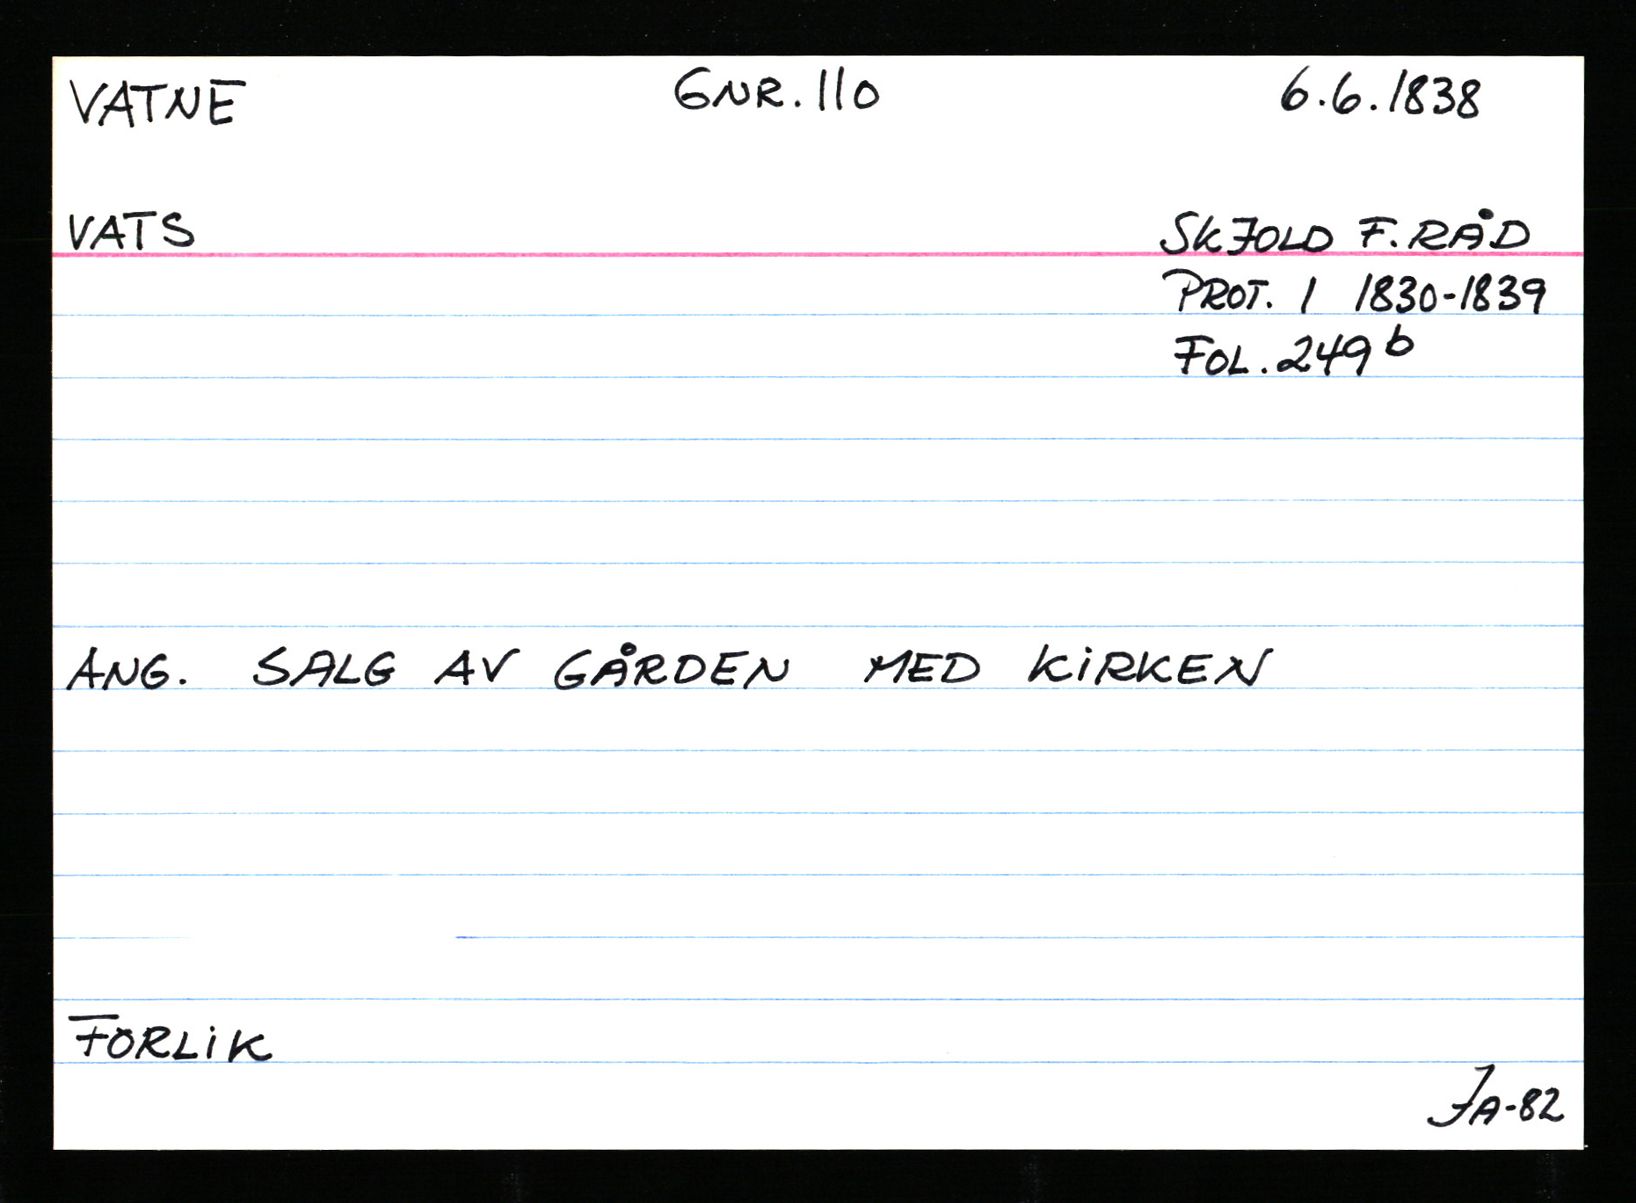 VATNE GNR. 110 6.6.1838
VATS SKJOLD F. RÅD
PROT. 1 1830-1839
FOL. 249 b
ANG. SALG AV GÅRDEN MED KIRKEN
FORLIK
JA-82